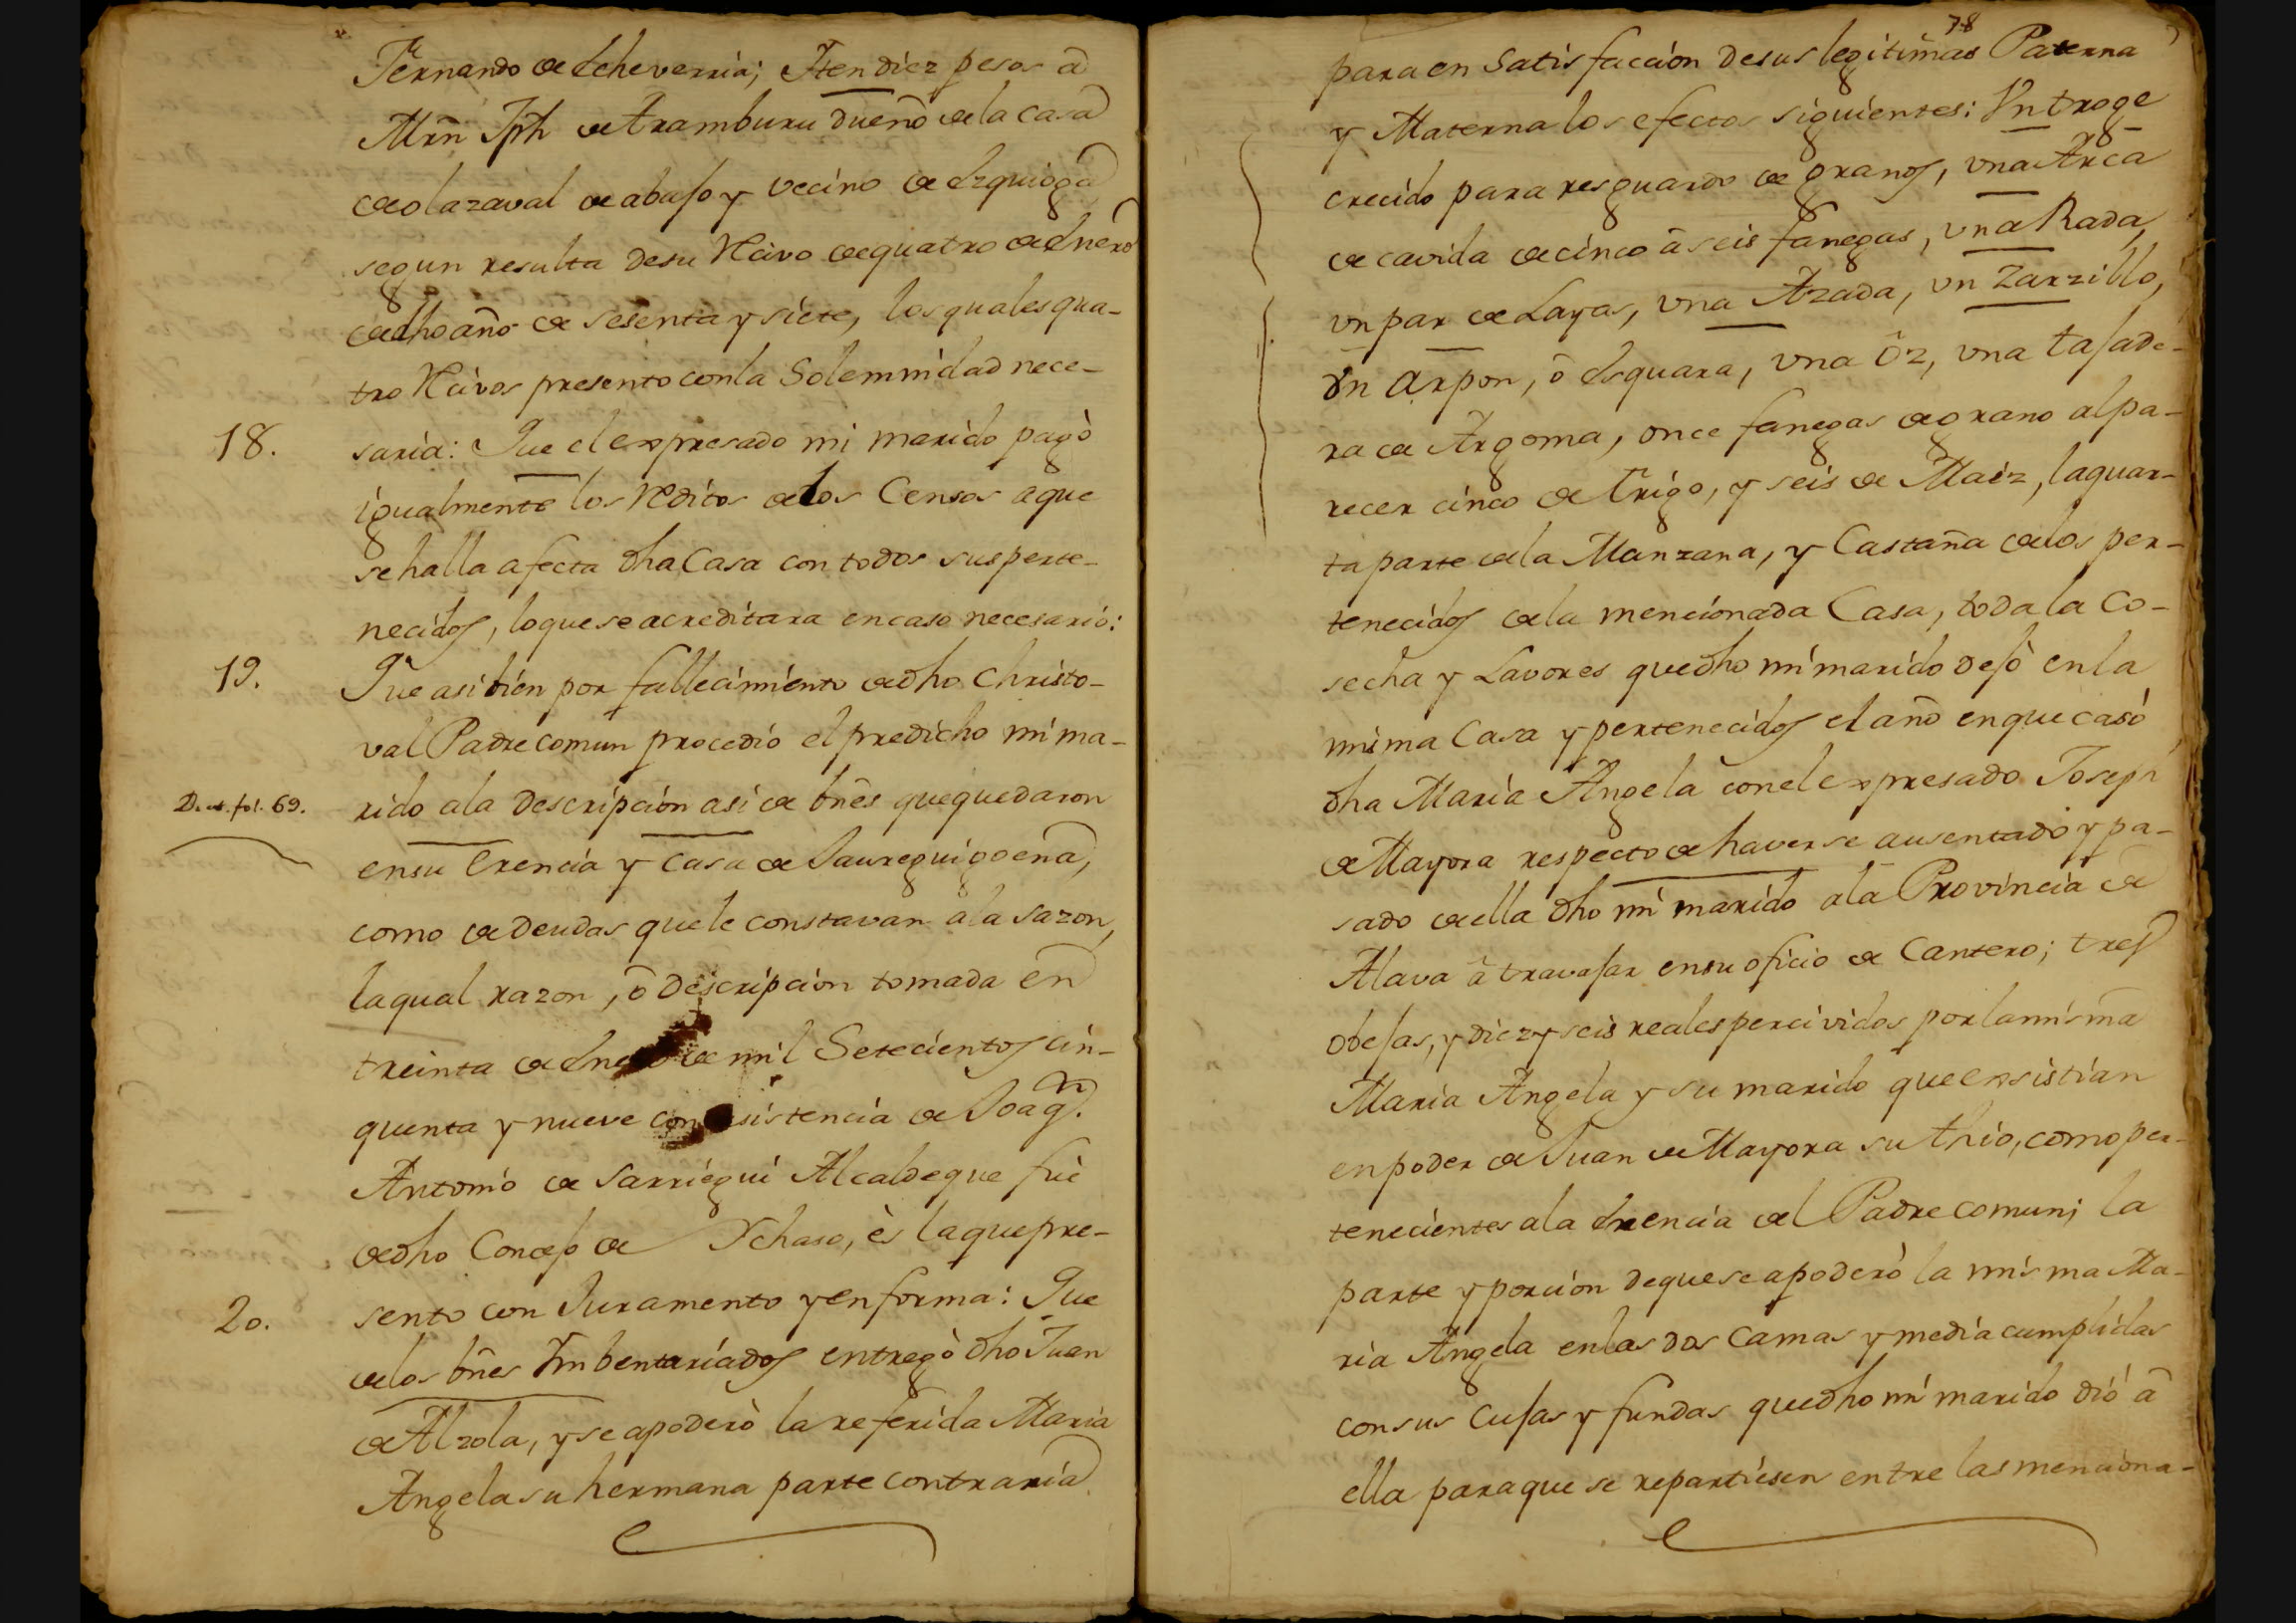 Fernando de Echeverria; Iten diez pesos a
Mrn Jph de Aramburu dueño de la casa
de olazaval de abajo y vecino de Ezquioga
segun resulta de su Rcivo de quatro de Enero
de dho año de sesenta y siete, los quales qua-
tro Rcivos presento con la Solemnidad nece-
18. saria: Que el expresado mi marido pagò
igualmente los Rditos de los Censos a que
se halla afecta dha Casa con todos sus perte-
necidos, lo que se acreditara en caso necesario:
19. Que asi bien por fallecimiento de dho Christo-
val Padre comun procedió el predicho mi ma-
D. fol. 69. rido ala descripcion asi de bñes que quedaron
en su Erencia y casa de Jaureguigoena,
como de deudas que le constavan a la sazon,
la qual razon, ò Descripcion tomada en
treinta de Enero de mil Setecientos cin-
quenta y nueve con asistencia de Joaqn.
Antonio de Sarriegui Alcalde que fuè
de dho Concejo de Ychaso, ès la que pre-
20. sento con Juramento y en forma: Que
de los bñes Imbentariados entregò dho Juan
de Alzola, y se apoderò la referida Maria
Angela su hermana parte contraria
78
para en Satisfaccion de sus legitimas Paterna
y Materna los efectos siguientes: Un troge
crecido para resguardo de granos, una Arca
de cavida de cinco â seis fanegas, una Rada,
un par de Layas, una Azada, un Zarzillo,
Un arpon, ô Esquara, una ôz, una tajade-
ra de Argoma, once fanegas de grano al pa-
recer cinco de trigo, y seis de Maiz, la quar-
ta parte de la Manzana, y Castaña de los per-
tenecidos de la mencionada Casa, toda la co-
secha y Lavores que dho mi marido dejò en la
misma Casa y pertenecidos el año en que casó
dha Maria Angela con el expresado Joseph
de Mayora respecto de haverse ausentado y pa-
sado de ella dho mi marido a la Provincia de
Alava â travajar en su oficio de Cantero; tres
obejas, y diez y seis reales percividos por la misma
Maria Angela y su marido que exsistian
en poder de Juan de Mayora su thio, como per-
tenecientes a la Erencia del Padre comun; la
parte y porcion de que se apoderò la misma Ma-
ria Angela en las dos Camas y media cumplidas
con sus Cujas y fundas que dho mi marido dió â
ella para que se repartiesen entre las menciona-